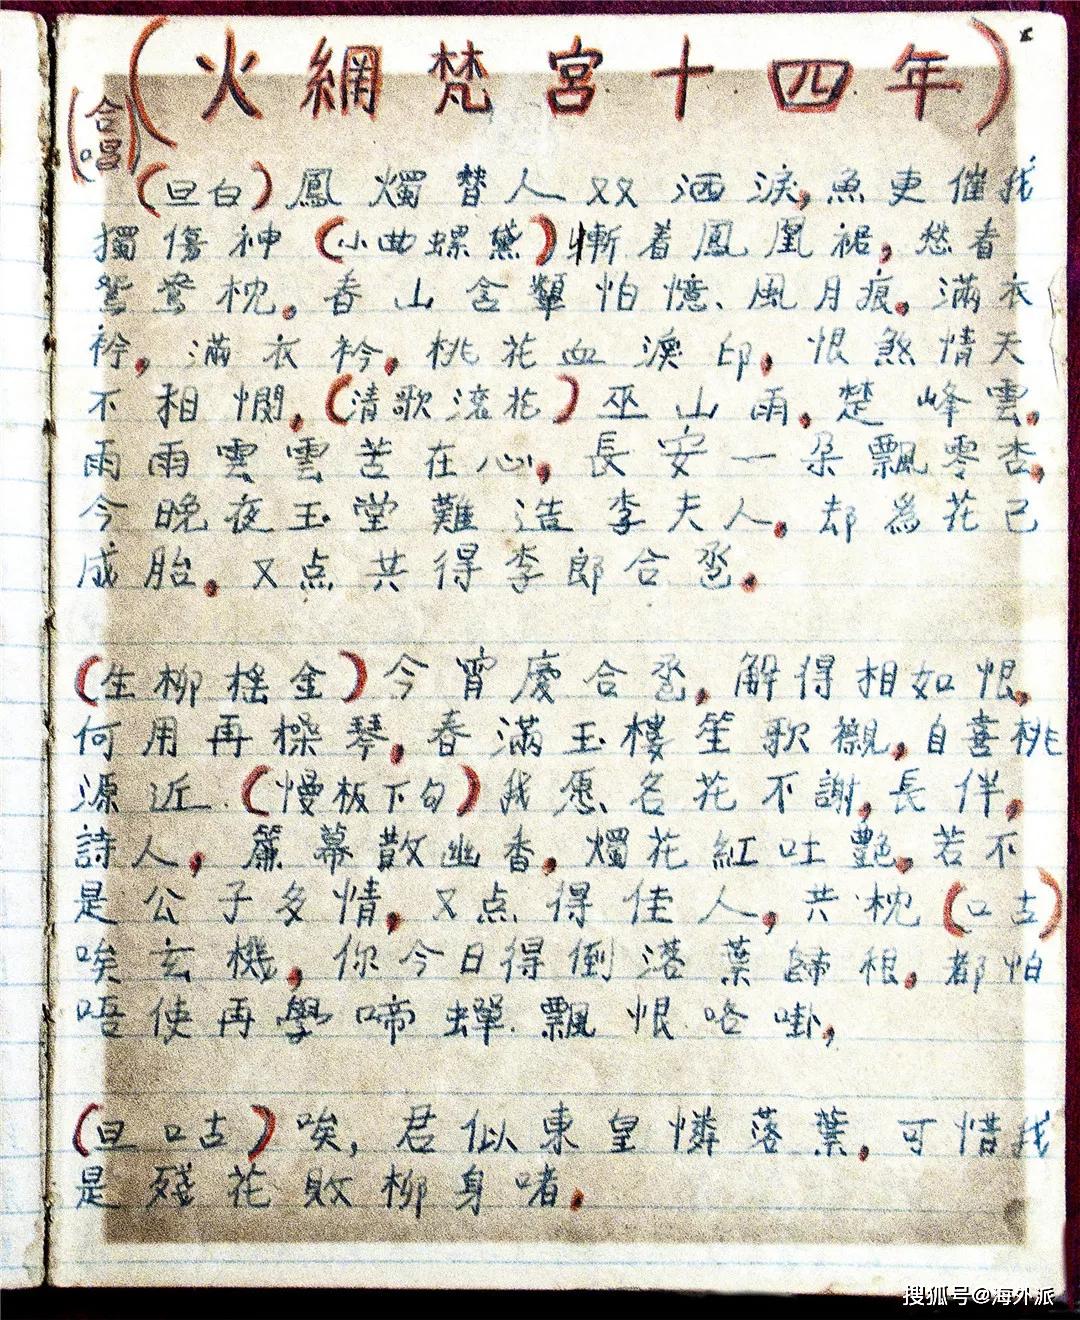 (火網梵宮十四年)
(合唱)
(旦白)鳳燭替人双洒淚,魚更催我
獨傷神(小曲螺黛)慚着鳳凰裙,愁看
鴛鴦枕。春山含顰怕憶、風月痕。滿衣
衿,滿衣衿,桃花血淚印,恨煞情天
不相憫,(清歌滚花)巫山雨,楚峰雲,
雨雨雲雲苦在心,長安一朵飄零杏,
今晚夜玉堂難造李夫人,却為花已
成胎。又点共得李郎合卺。
(生柳搖金)今宵慶合卺,解得相如恨,
何用再操琴,春滿玉樓笙歌襯,自喜桃
源近.(慢板下句)我愿名花不謝,長伴,
詩人,簾幕散幽香,燭花紅吐艷。若不
是公子多情,又点得佳人,共枕(口古)
唉玄機,你今日得倒落葉歸根,都怕
唔使再學啼蟬飄恨咯啩,
(旦口古)唉,君似東皇憐落葉,可惜我
是殘花敗柳身啫。
搜狐号@海外派